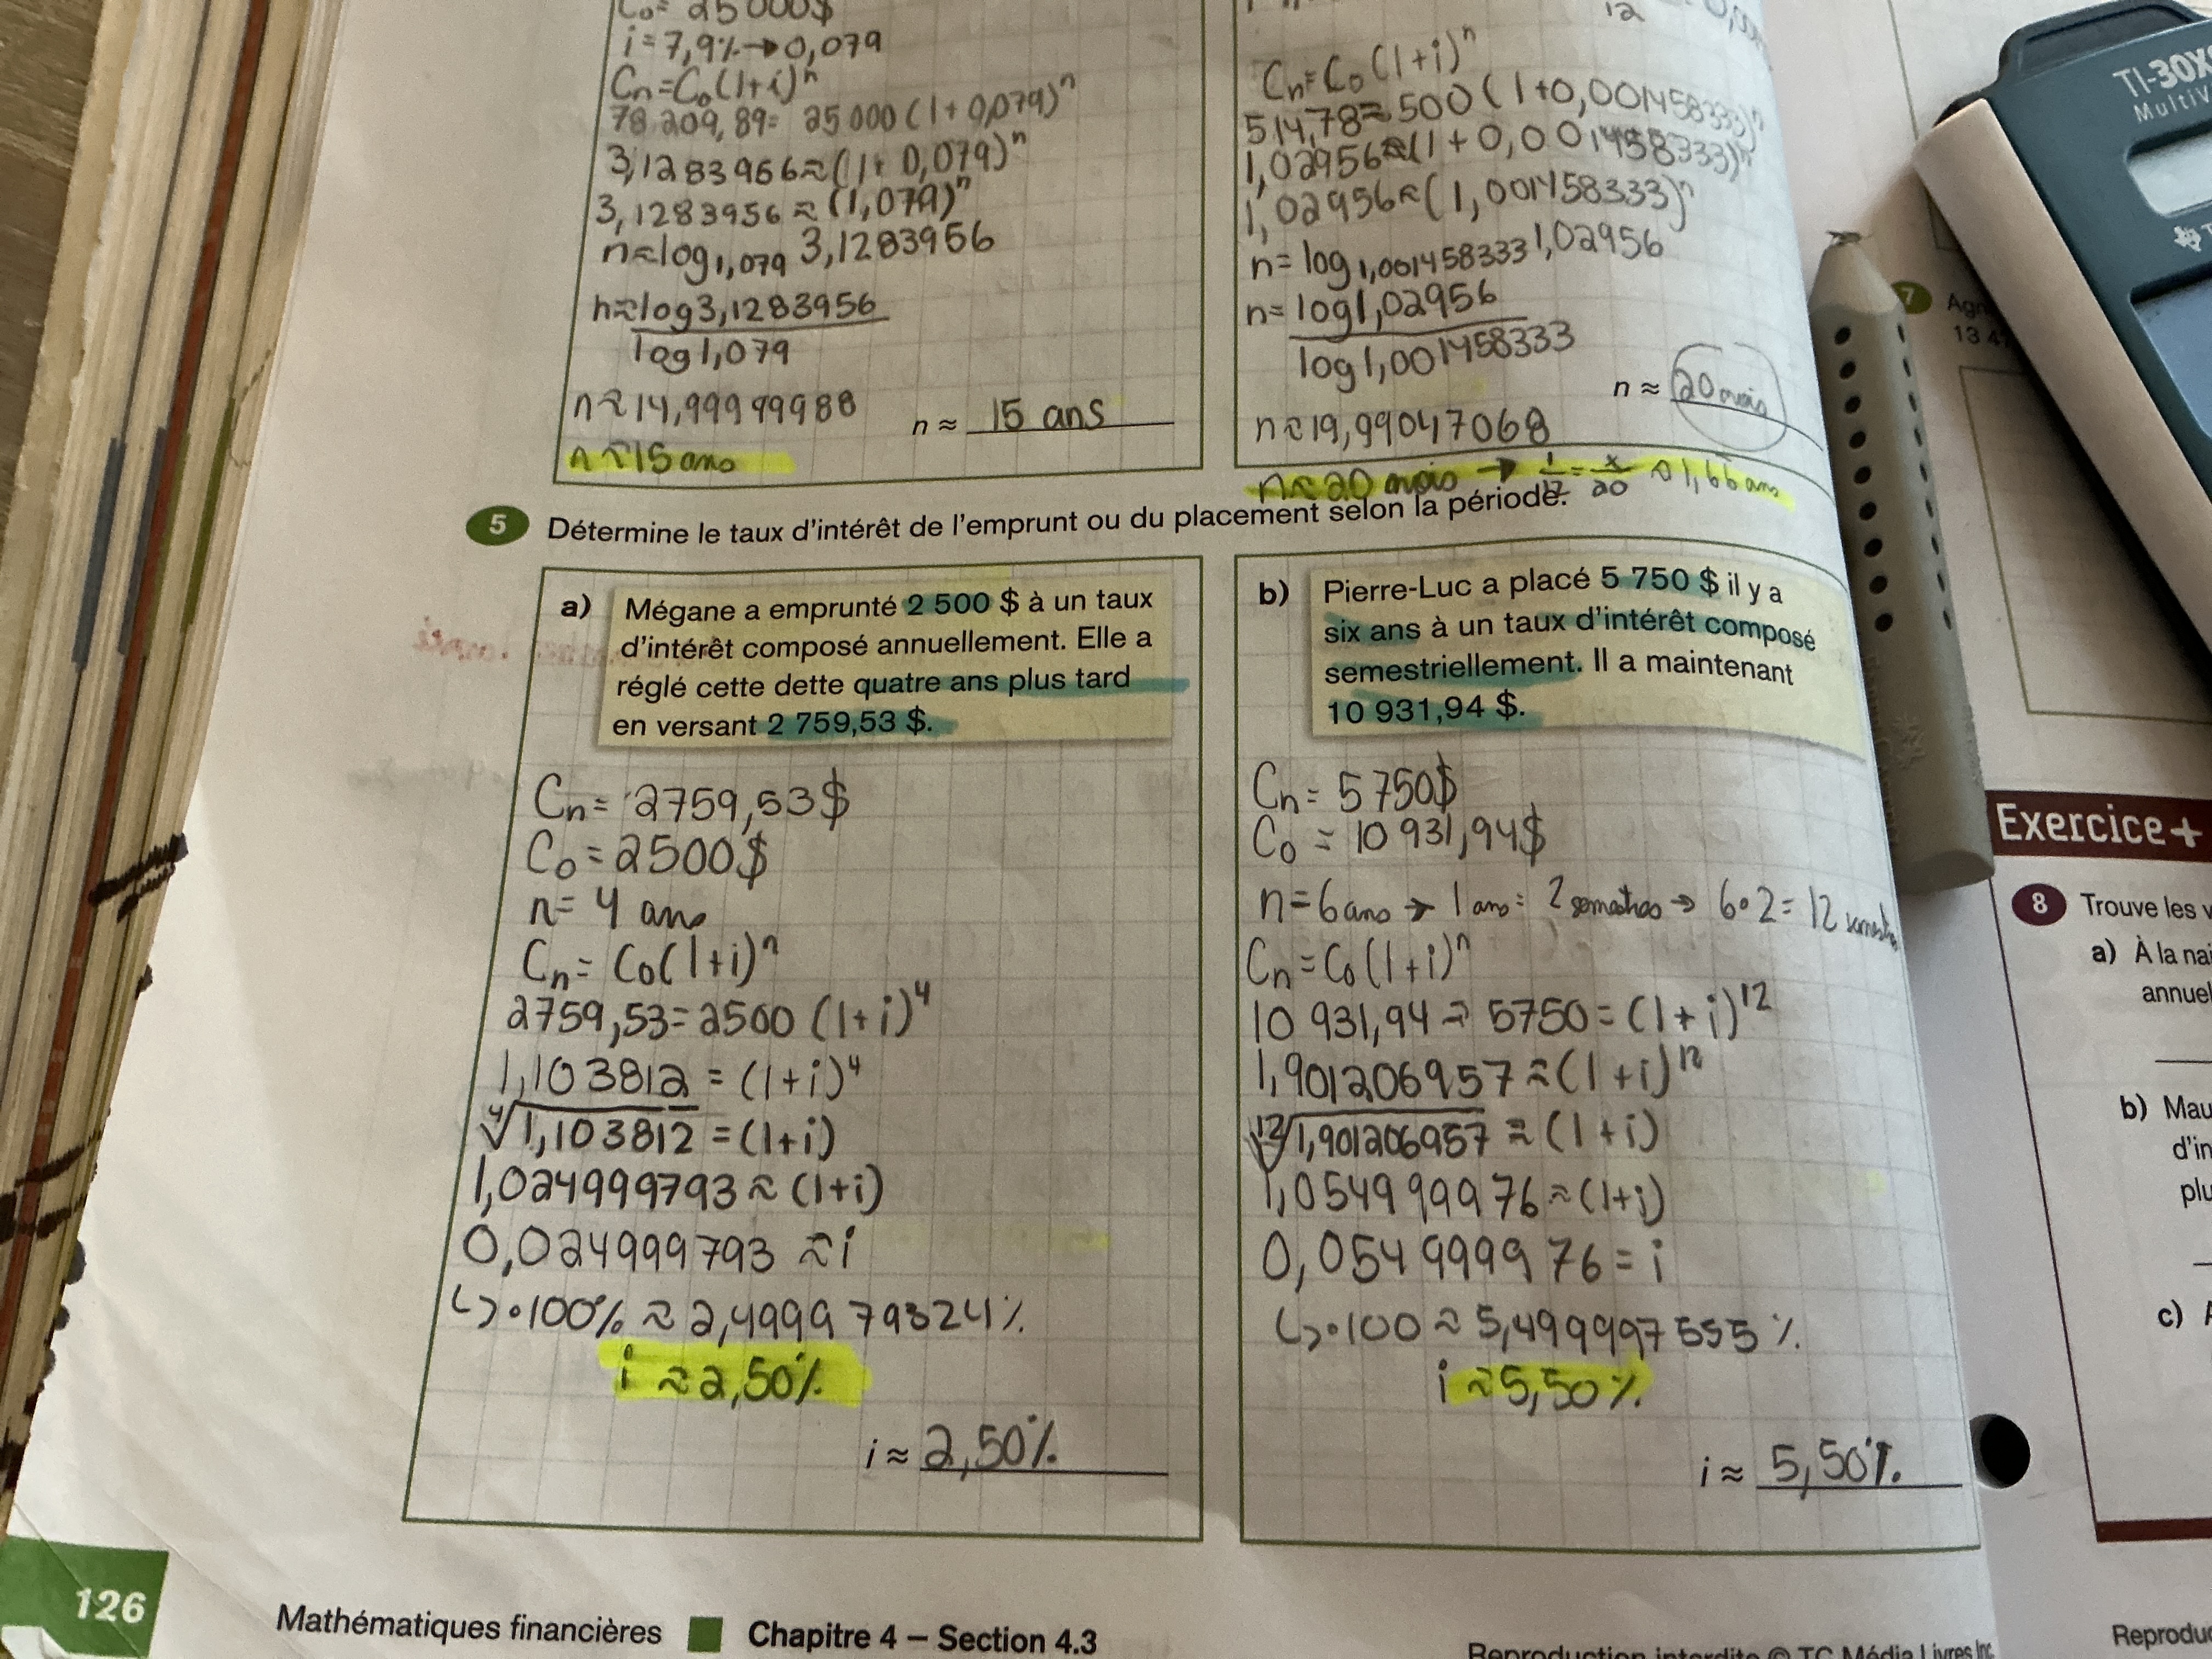 C₀= 25 000$
i=7,9%→0,079
Cn=C₀(1+i)ⁿ
78 209,89= 25 000(1+0,079)ⁿ
3,1283956≈(1+0,079)ⁿ
3,1283956≈(1,079)ⁿ
n≈log₁,₀₇₉ 3,1283956
n≈log3,1283956
log1,079
n≈14,99999988
n ≈ 15 ans
n≈15ans
12
Cn=C₀(1+i)ⁿ
514,78≈500(1+0,001458333)ⁿ
1,02956≈(1+0,001458333)ⁿ
1,02956≈(1,001458333)ⁿ
n=log₁,₀₀₁₄₅₈₃₃₃1,02956
n=log1,02956
log1,001458333
n ≈ 20 mois
n≈19,99047068
n≈20 mois → 1/12 = x/20 ≈1,66 ans
5 Détermine le taux d'intérêt de l'emprunt ou du placement selon la période.
a) Mégane a emprunté 2 500 $ à un taux
d'intérêt composé annuellement. Elle a
réglé cette dette quatre ans plus tard
en versant 2 759,53 $.
Cn= 2759,53$
C₀=2500$
n= 4 ans
Cn= C₀(1+i)ⁿ
2759,53=2500 (1+i)⁴
1,103812 = (1+i)⁴
⁴√1,103812 = (1+i)
1,024999793≈(1+i)
0,024999793 ≈i
↳•100% ≈ 2,499979324%
i ≈2,50%
i ≈ 2,50%
b) Pierre-Luc a placé 5 750 $ il y a
six ans à un taux d'intérêt composé
semestriellement. Il a maintenant
10 931,94 $.
Cn= 5750$
C₀ = 10 931,94$
n=6ans → 1 ans= 2 semestres → 6•2=12 semestres
Cn=C₀(1+i)ⁿ
10 931,94 = 5750=(1+i)¹²
1,901206957≈(1+i)¹²
¹²√1,901206957 ≈ (1+i)
1,054999976≈(1+i)
0,054999976=i
↳•100≈5,499997555%
i≈5,50%
i ≈ 5,50%
126
Mathématiques financières Chapitre 4 – Section 4.3
Reproduction interdite © TC Média Livres Inc.
TI-30X
MultiV
7 Agn
13 4
Exercice+
8 Trouve les v
a) À la nai
annuel
b) Mau
d'in
plu
c)
Reproduc